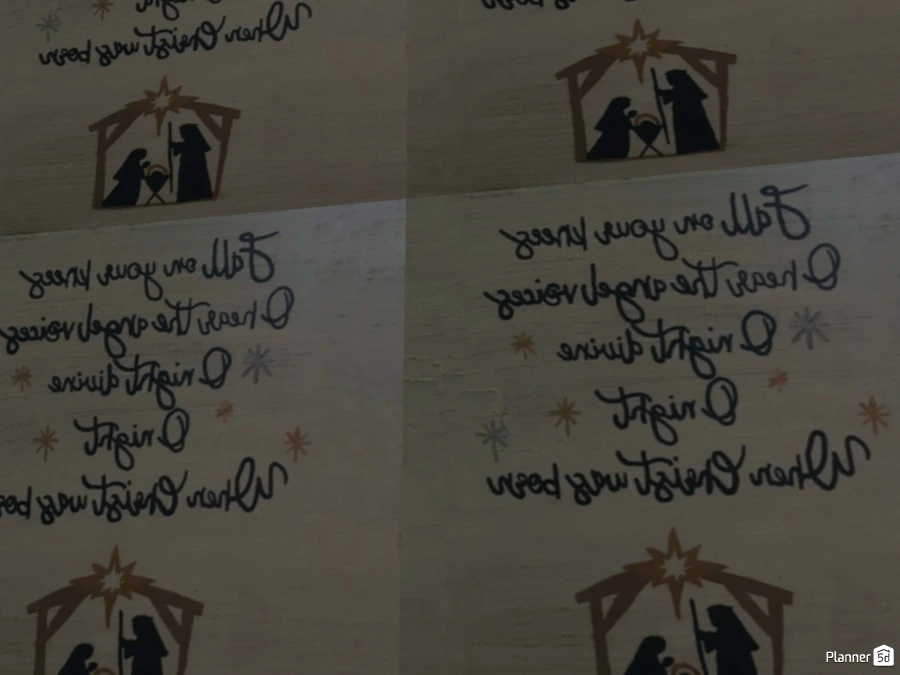 When Christ was born
Fall on your knees
O hear the angel voices
O night divine
O night
When Christ was bor
Fall on your knees
O hear the angel voices
O night divine
O night
When Christ was born
Planner 5d